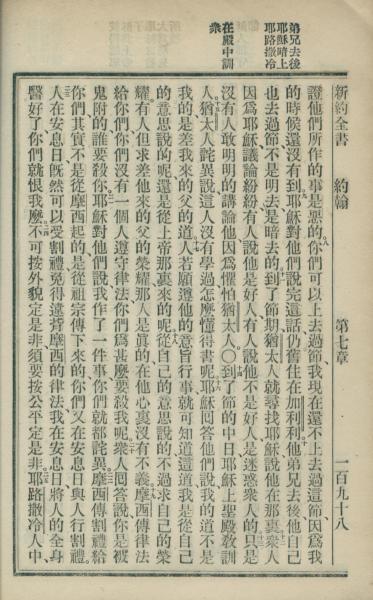 弟兄去後
耶穌暗上
耶路撒冷
在殿中訓
衆
新約全書 約翰 第七章 一百九十八
證他們所作的事是惡的你們可以上去過節我現在還不上去過這節因爲我
的時候還沒有到耶穌對他們說完這話仍舊住在加利利他弟兄去後他自己
也去過節不是明去是暗去的到了節期猶太人就尋找耶穌說他在那裏衆人
因爲耶穌議論紛紛有人說他是好人有人說他不是好人是迷惑衆人的只是
沒有人敢明明的講論他因爲懼怕猶太人〇到了節的中日耶穌上聖殿敎訓
人猶太人詫異說這人沒有學過怎麼懂得書呢耶穌回答他們說我的道不是
我的是差我來的父的道人若願遵他的意旨行事就可知道這道我是從自己
的意思說的呢還是從上帝那裏來的呢從自己的意思說的不過求自己的榮
耀有人但求差他來的父的榮耀那人是眞的在他心裏沒有不義摩西傳律法
給你們你們沒有一個人遵守律法你們爲甚麼要殺我呢衆人回答說你是被
鬼附的誰要殺你耶穌對他們說我作了一件事你們就都詫異摩西傳割禮給
你們其實不是從摩西起的是從祖宗傳下來的你們又在安息日與人行割禮
人在安息日旣然可以受割禮免得違背摩西的律法我在安息日將人的全身
醫好了你們就恨我麼不可按外貌定是非須要按公平定是非耶路撒冷人中